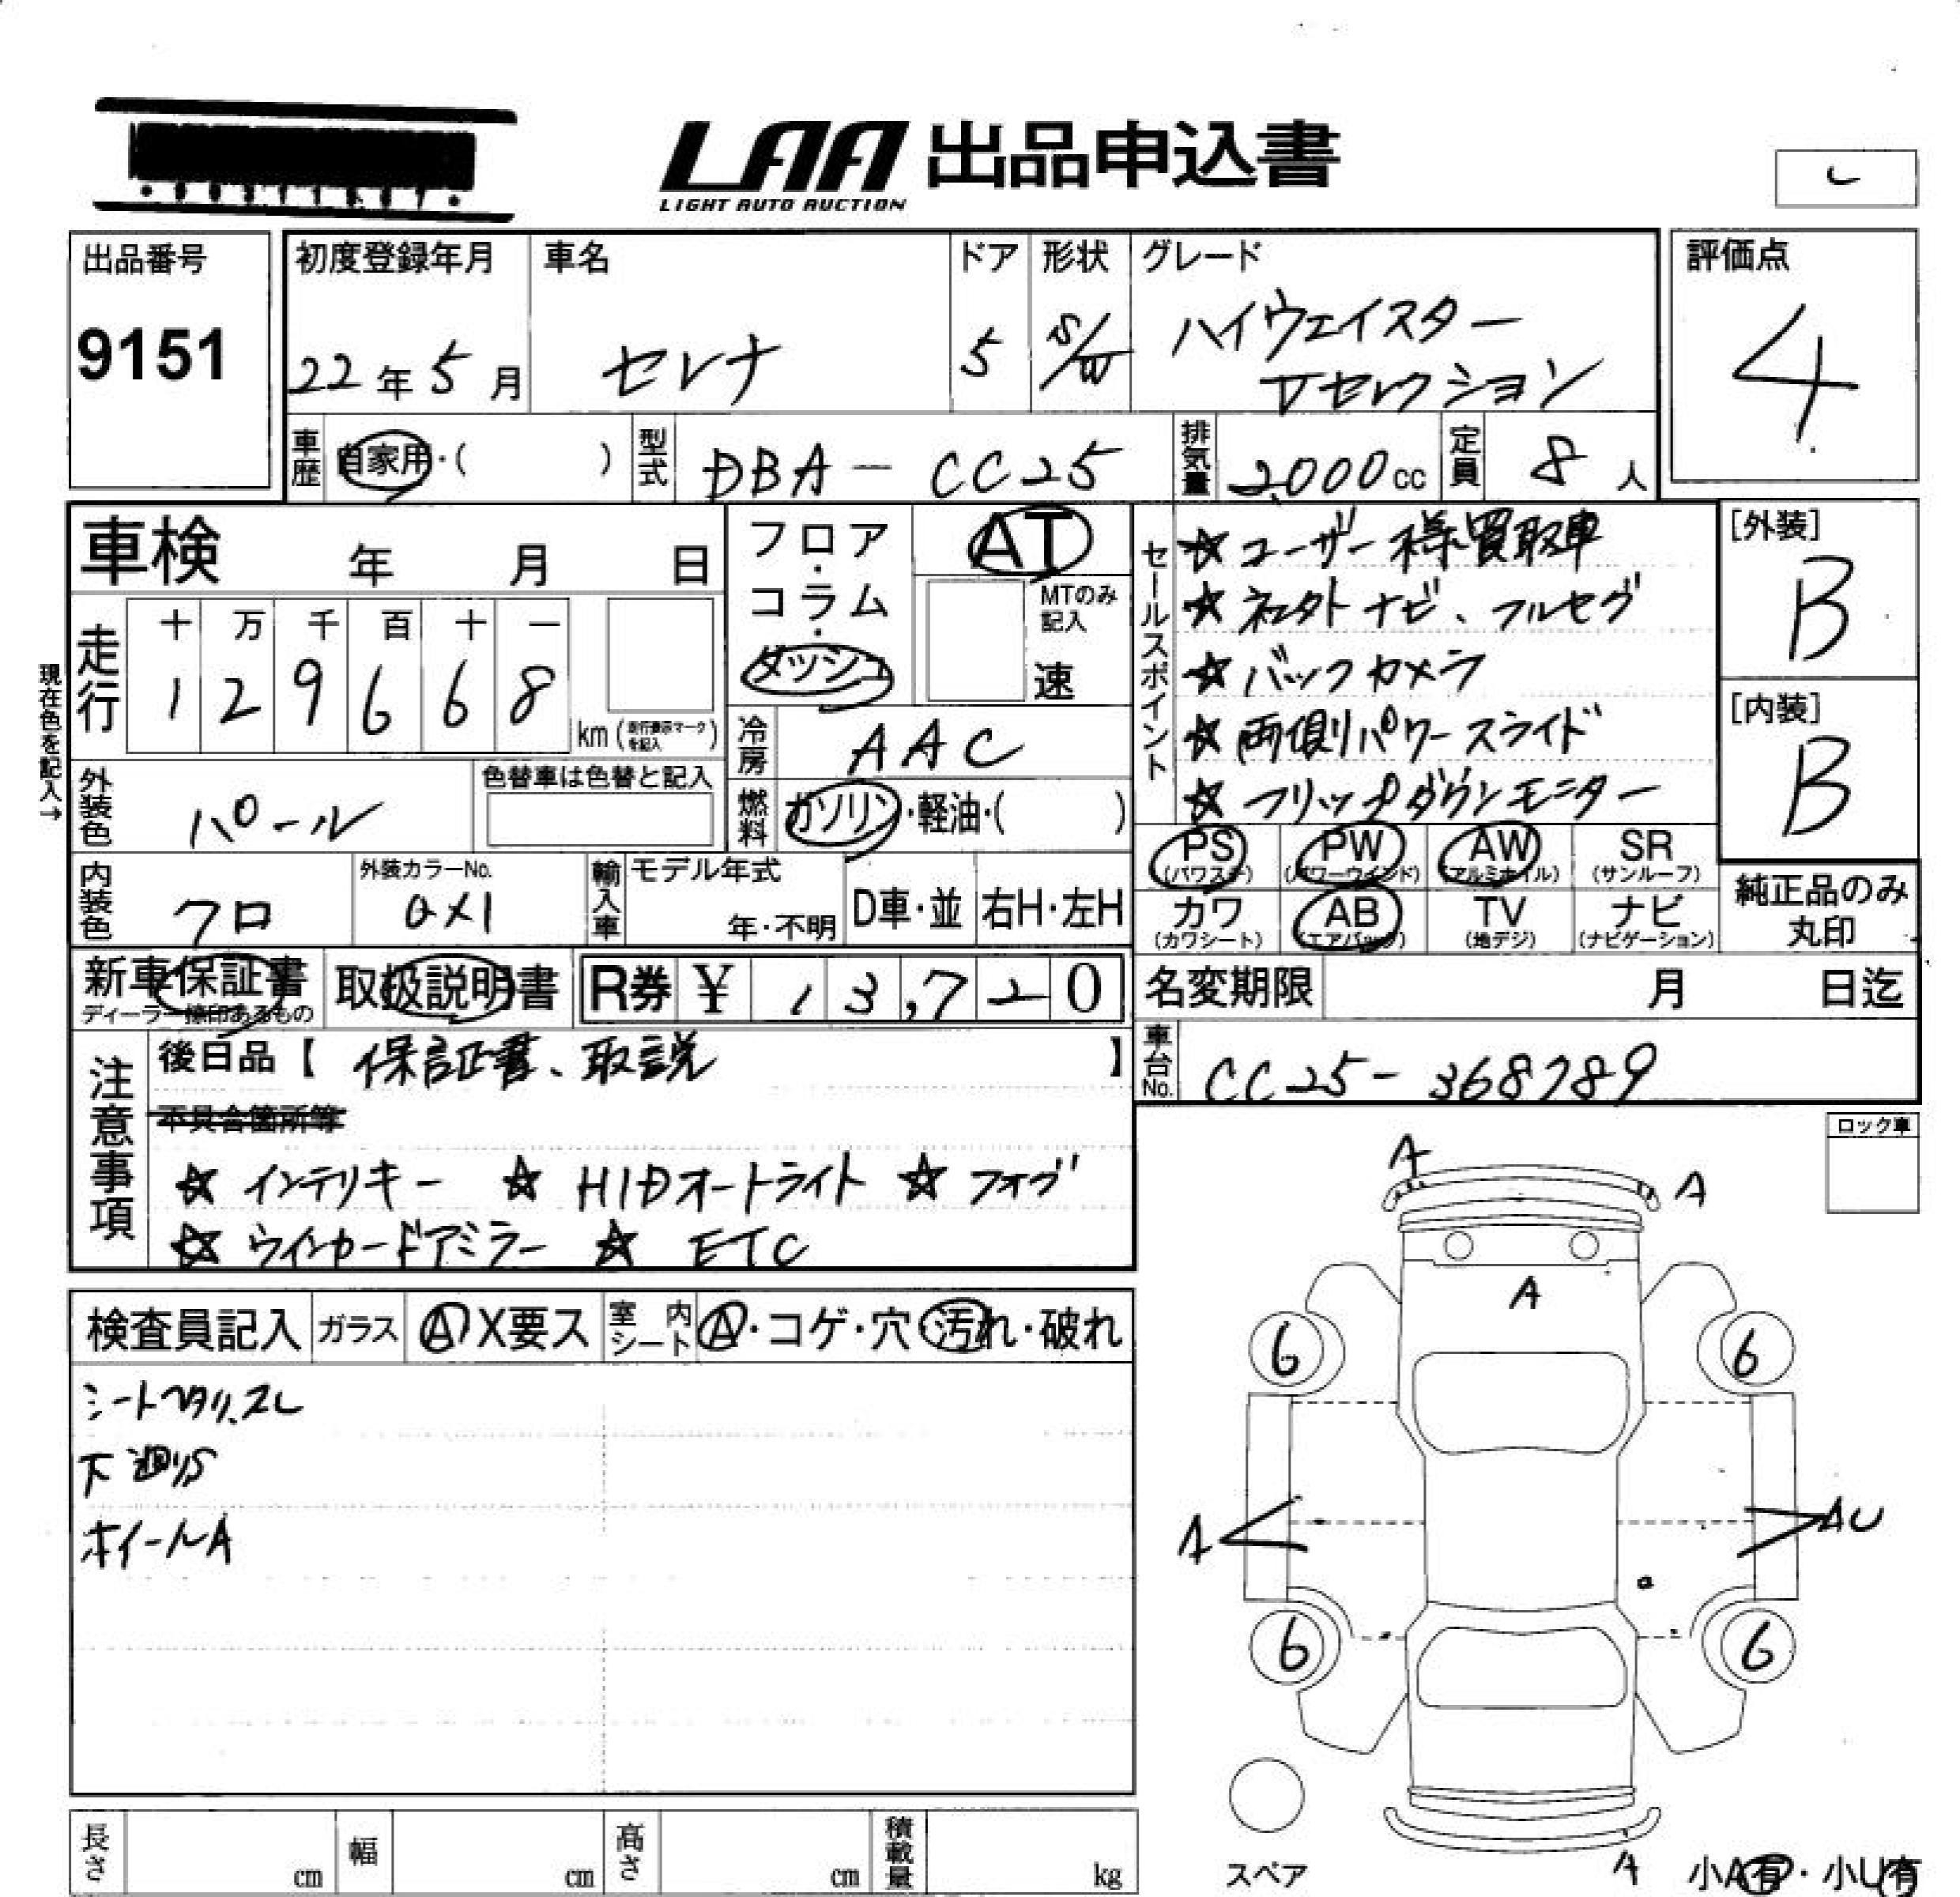 LAA 出品申込書
LIGHT AUTO AUCTION
出品番号
9151
初度登録年月
22年5月
車名
セレナ
ドア
5
形状
S/W
グレード
ハイウェイスター
Vセレクション
評価点
4
車歴
自家用・( )
型式
DBA-CC25
排気量
2,000cc
定員
8人
車検 年 月 日
フロア・コラム・ダッシュ
AT
MTのみ記入
速
セールスポイント
☆ユーザー様買取車
☆ナビ、フルセグ
☆バックカメラ
☆両側パワースライド
☆フリップダウンモニター
[外装]
B
[内装]
B
現在色を記入→
走行
十 万 千 百 十 一
1 2 9 6 6 8
km(走行表示マークを記入)
冷房
AAC
燃料
ガソリン・軽油・( )
外装色
パール
色替車は色替と記入
内装色
クロ
外装カラーNo.
QX1
輸入車
モデル年式
年・不明
D車・並
右H・左H
PS (パワステ)
PW (パワーウインド)
AW (アルミホイル)
SR (サンルーフ)
カワ (カワシート)
AB (エアバック)
TV (地デジ)
ナビ (ナビゲーション)
純正品のみ丸印
新車保証書
ディーラー捺印あるもの
取扱説明書
R券 ¥ 13,720
名変期限 月 日迄
車台No.
CC25-368789
注意事項
後日品【 保証書、取説 】
不具合箇所等
☆インテリキー ☆HIDオートライト ☆フォグ
☆ウインカードアミラー ☆ETC
ロック車
検査員記入
ガラス
A X要ス
室内シート
A・コゲ・穴 汚れ・破れ
シートヘタリ、スレ
下廻りS
ホイールA
A
A
A
6
6
A
AU
6
6
スペア
A
小A有・小U有
長さ cm
幅 cm
高さ cm
積載量 kg